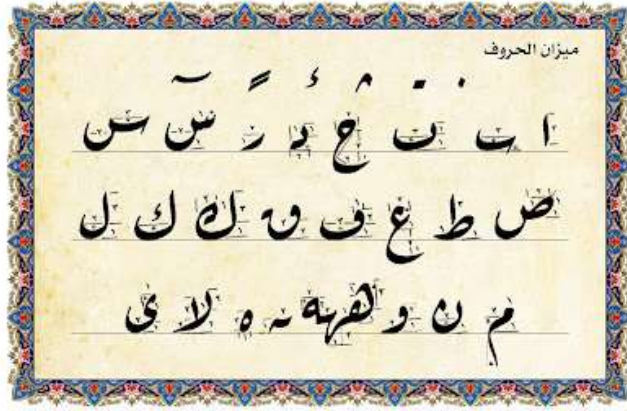 ميزان الحروف
ا ب ت ح د ر س س
ص ط ع ف ق ك ك ك ل
م ن و ههه ه ه لا ى